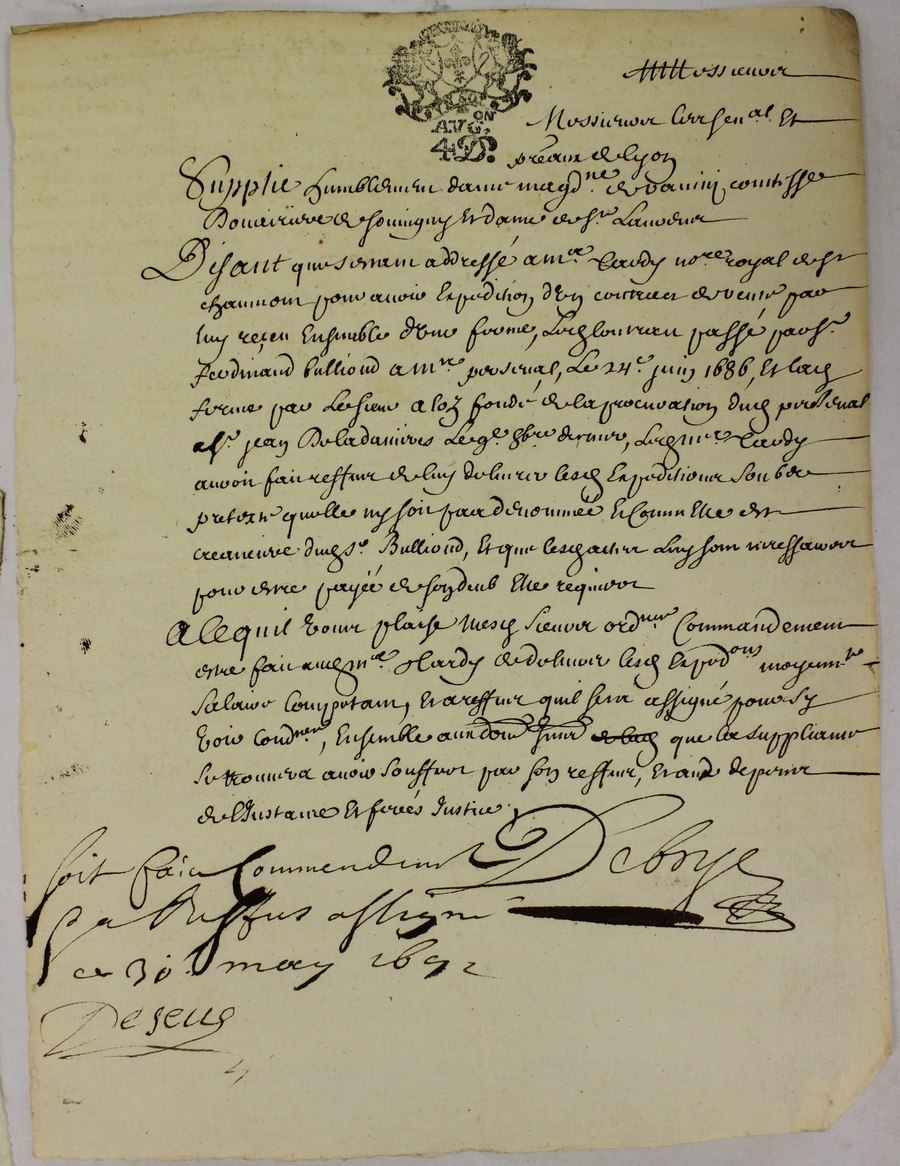 AVG.ON
4D.
Messieurs
Messieurs les sen.al Et
de Lyon
Supplie humblement dame magd.ne de comtesse
Douairiere de Et dame de St
Disant que s'estant addressé a m.re Hardy no.re royal de St
chaumont pour avoir Expedition d'un contract de vente par
luy reçeu Ensemble d'une ferme, Led. contract passé par Sr
Ferdinand Bulliond a m.re perseval, Le 24.e juin 1686, Et lad.
ferme par Le sieur fondé de la procuration dud. perseval
a Sr jean Le 9.e 8bre dernier, Led. m.re Hardy
auroit fait reffus de luy delivrer lesd. Expeditions soubs
pretexte quelle ny soit pas dénommée Et comme Elle est
creanciere dud. Sr Bulliond, Et que lesd. actes Luy sont necessaires
pour estre payée de son deub Elle requiert
A Ce quil vous plaise Mesd. sieurs ord.ner Commandement
estre fait aud. m.re Hardy de delivrer lesd. Exped.ons moyenn.t
salaire Competant, Et a reffus quil sera assigné pour sy
voir cond.ner, Ensemble aux dom. inter. que la suppliante
se trouvera avoir souffert par son reffus, Et aux depens
de l'Instance Et ferés Justice,
Soit fait Commendement Debrye
Et a Reffus assigné
ce 30 may 1692
Deseug